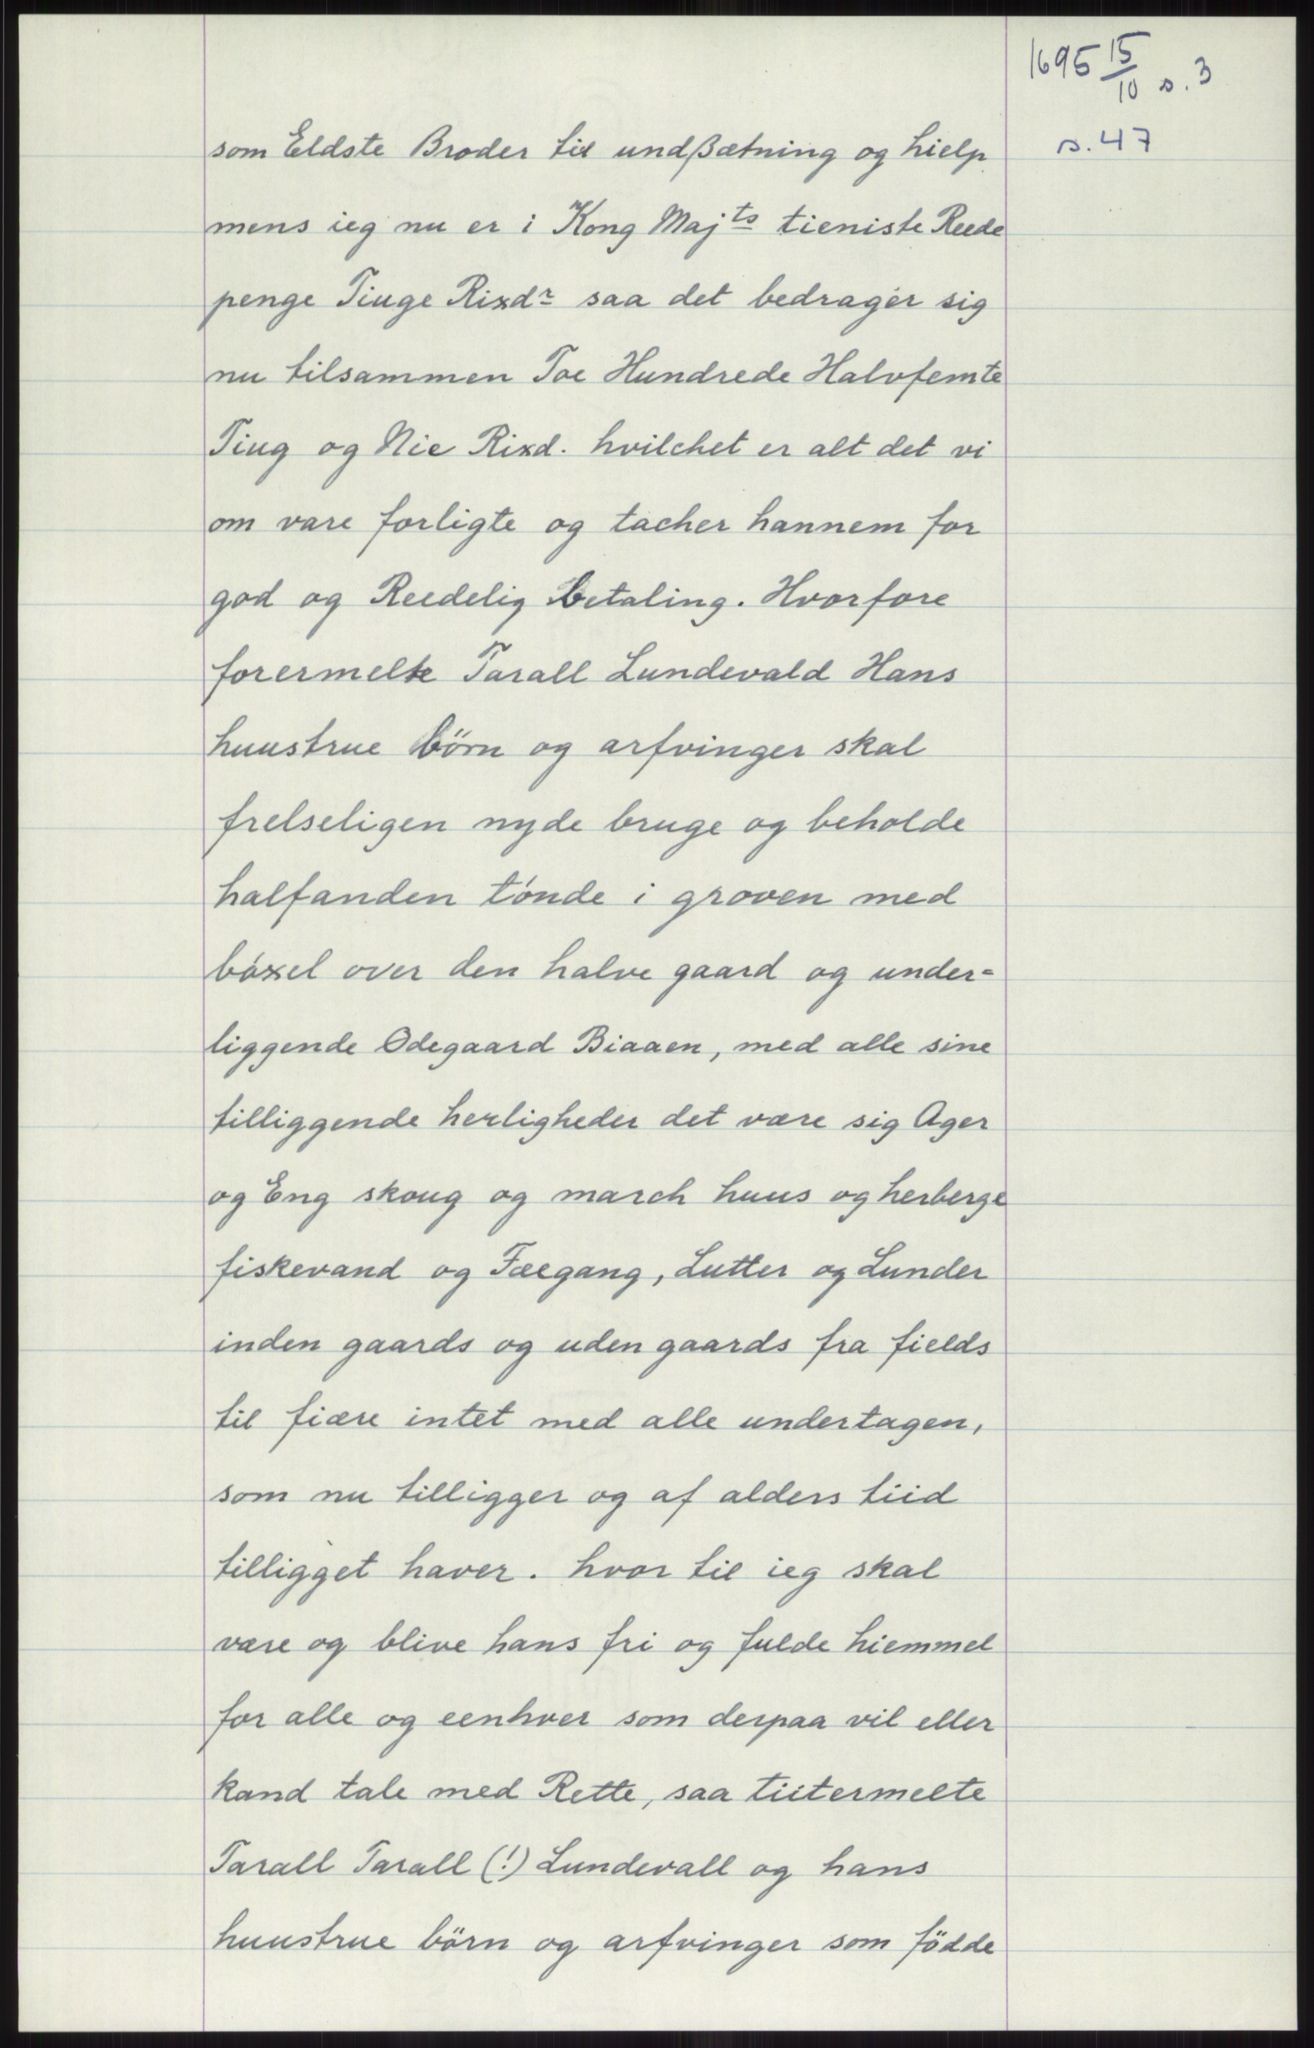 1695 15/10 s. 3
s. 47
som Eldste Broder til undßætning og hielp
mens ieg nu er i Kong Maj^ts tieniste Reede
penge Tiuge Rixd^r saa det bedrager sig
nu tilsammen Toe Hundrede Halvfemte
Tiug og Nie Rixd. hvilchet er alt det vi
om vare forligte og tacher hannem for
god og Reedelig betaling. Hvorfore
forermelte Tarall Lundevald Hans
huustrue börn og arfvinger skal
frelseligen nyde bruge og beholde
halfanden tónde i groven med
bóxel over den halve gaard og under=
liggende Ødegaard Biaaen, med alle sine
tilliggende herligheder det være sig Ager
og Eng skoug og march huus og herberge
fiskevand og Fæegang, Lutter og Lunder
inden gaards og uden gaards fra fields
til fiære intet med alle undertagen,
som nu tilligger og af alders tiid
tilligget haver. hvor til ieg skal
være og blive hans fri og fulde hiemmel
for alle og eenhver som derpaa vil eller
kand tale med Rette, saa titermelte
Tarall Tarall (!) Lundevall og hans
huustrue börn og arfvinger som födde